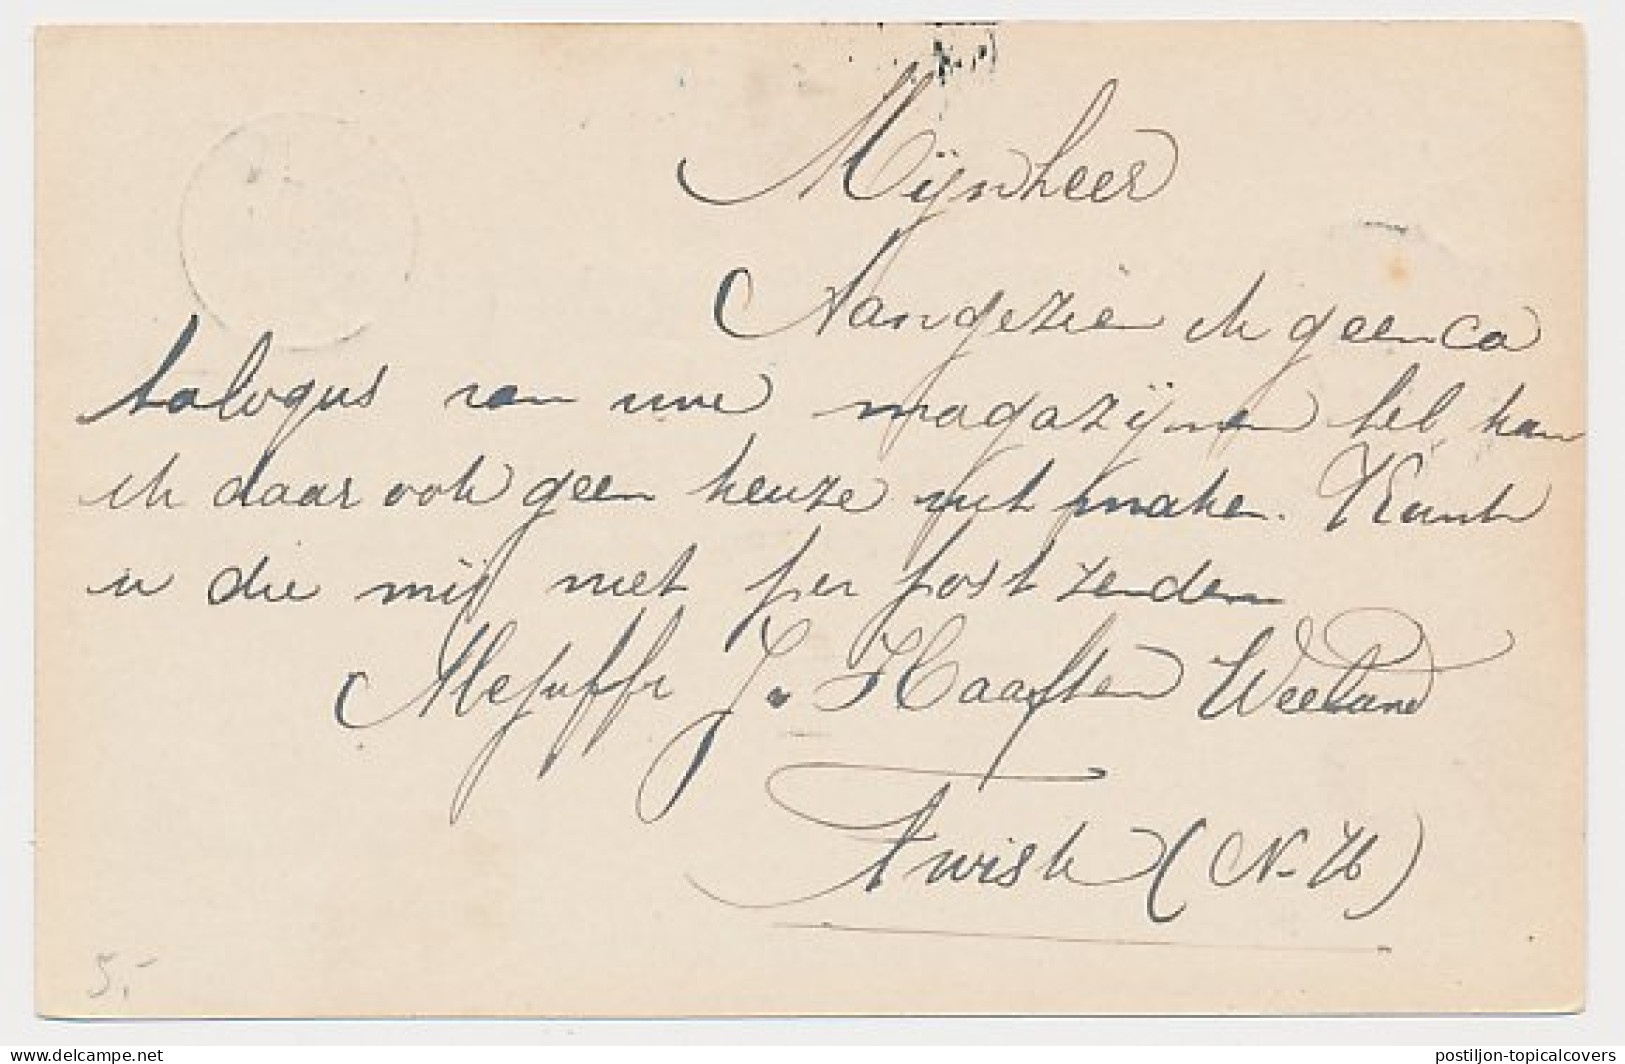 Mijnheer
Aangezien ik geen ca
talogus van uwe magazijnen heb, kan
ik daar ook geen keuze uit maken. Kunt
u die mij niet per post zenden
Mejuffr J. Haaften Weeland
Twisk (N-H)
5,-
delcampe.net
postiljon-topicalcovers